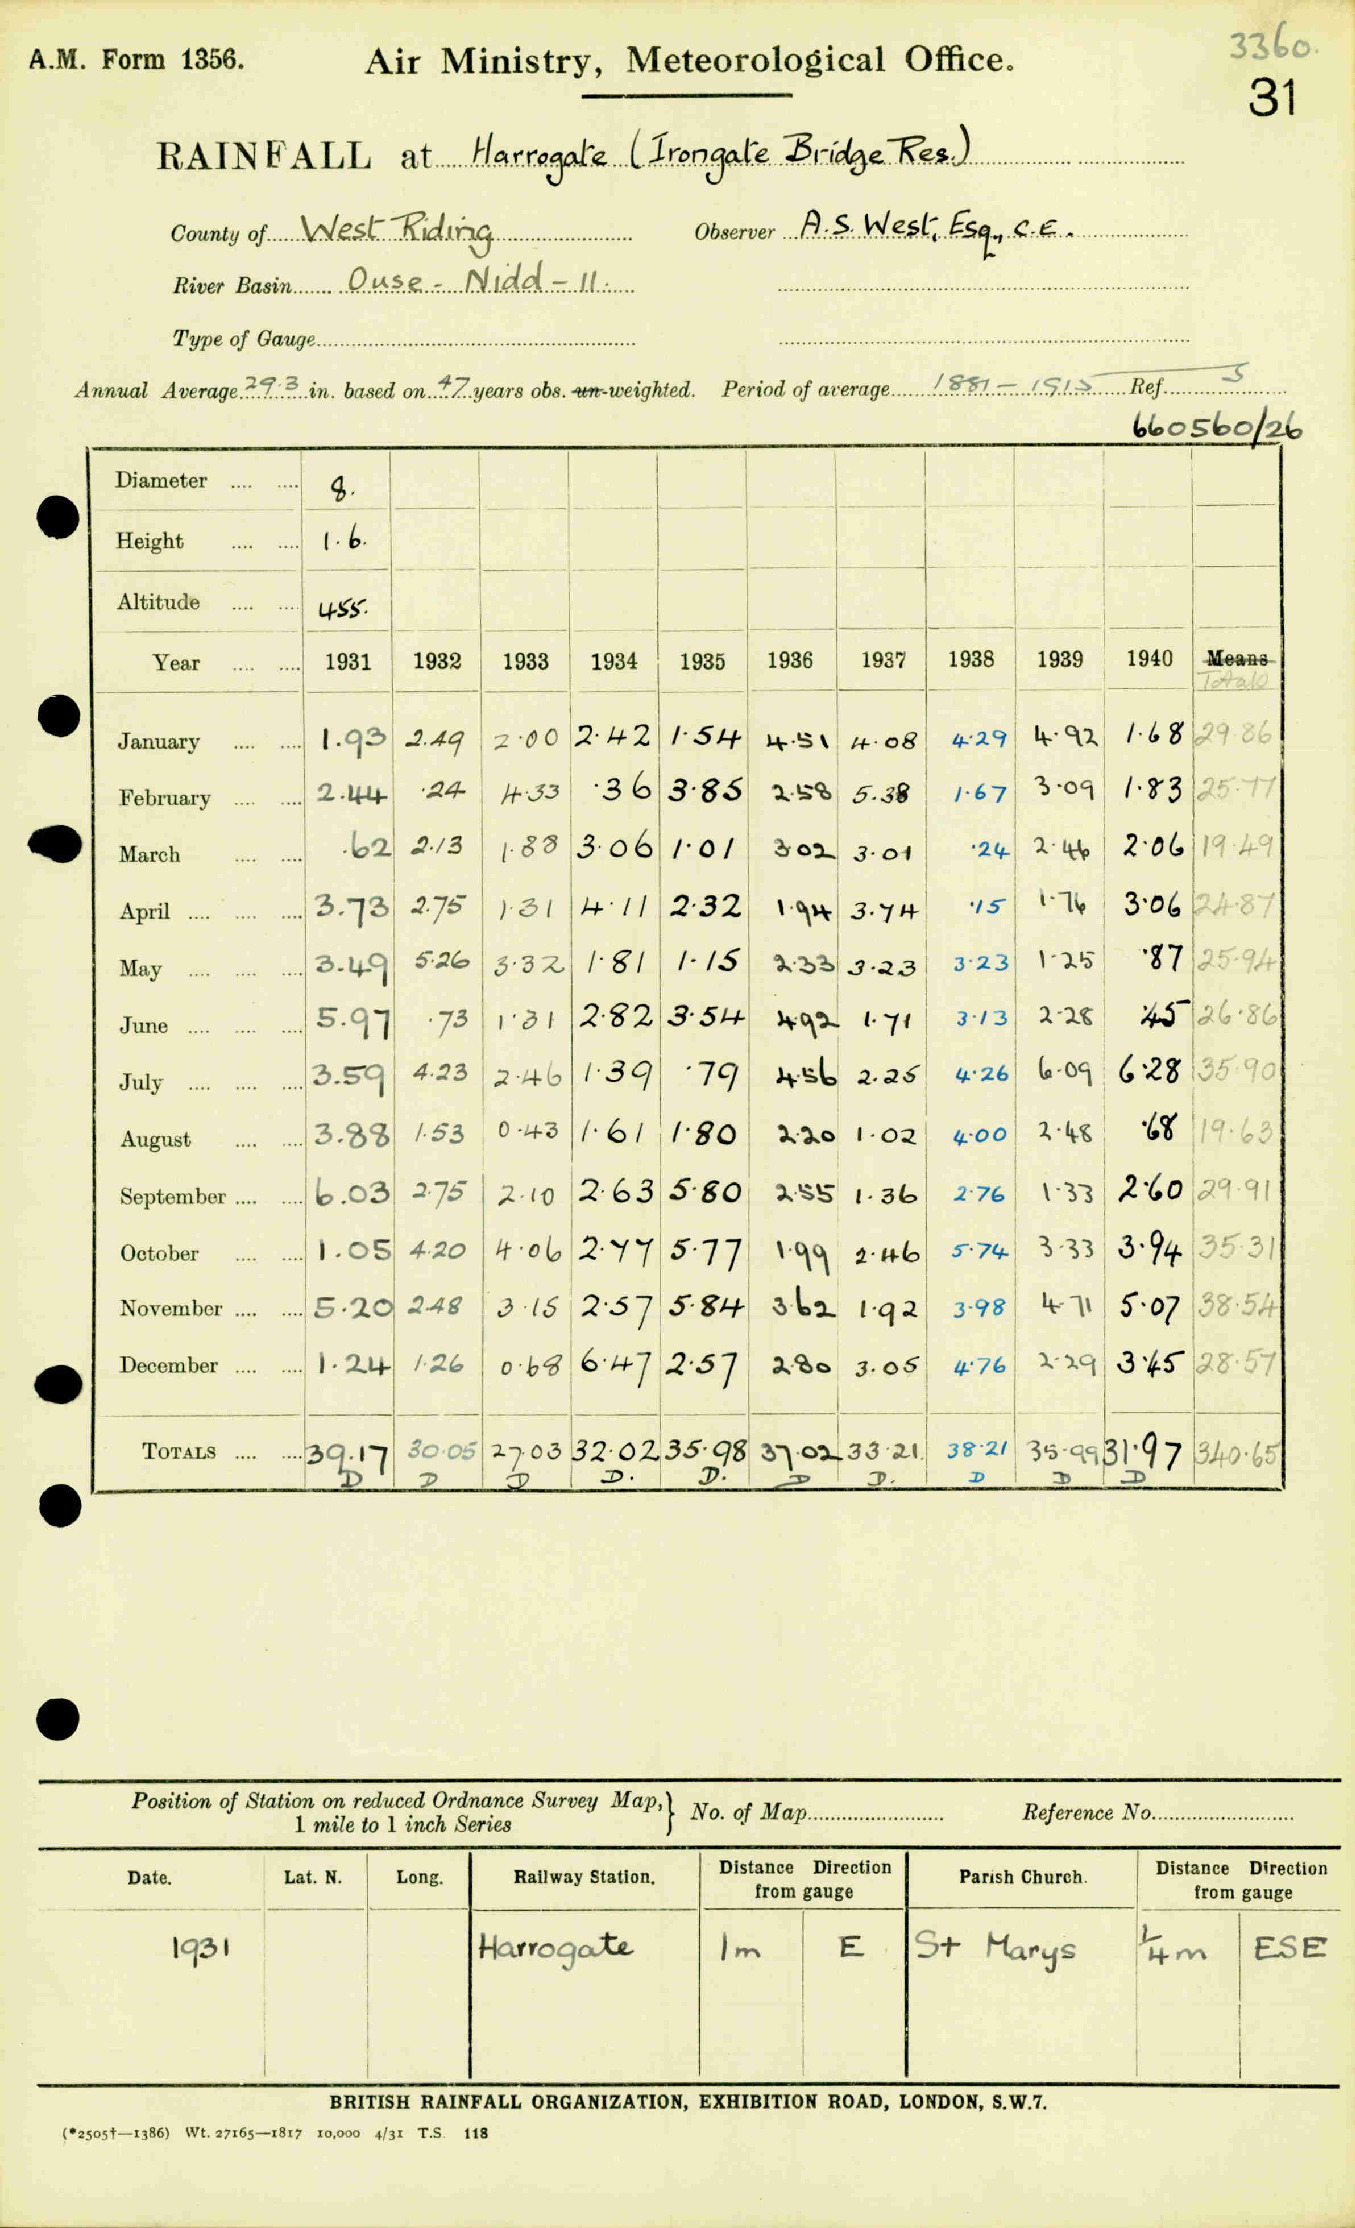 3360.
A.M. Form 1356. Air Ministry, Meteorological Office.
31
RAINFALL at Harrogate (Irongate Bridge Res.)
County of West Riding Observer A.S. West, Esq., C.E.
River Basin Ouse - Nidd - 11.
Type of Gauge
Annual Average 29.3 in. based on 47 years obs. un-weighted. Period of average 1881 - 1915 Ref. 5
660560/26
Diameter 8.
Height 1.6.
Altitude 455.
Year 1931 1932 1933 1934 1935 1936 1937 1938 1939 1940 Means
Totals
January 1.93 2.49 2.00 2.42 1.54 4.51 4.08 4.29 4.92 1.68 29.86
February 2.44 .24 4.33 .36 3.85 2.58 5.38 1.67 3.09 1.83 25.77
March .62 2.13 1.88 3.06 1.01 3.02 3.01 .24 2.46 2.06 19.49
April 3.73 2.75 1.31 4.11 2.32 1.94 3.74 .15 1.76 3.06 24.87
May 3.49 5.26 3.32 1.81 1.15 2.33 3.23 3.23 1.25 .87 25.94
June 5.97 .73 1.31 2.82 3.54 4.92 1.71 3.13 2.28 .45 26.86
July 3.59 4.23 2.46 1.39 .79 4.56 2.25 4.26 6.09 6.28 35.90
August 3.88 1.53 0.43 1.61 1.80 2.20 1.02 4.00 2.48 .68 19.63
September 6.03 2.75 2.10 2.63 5.80 2.55 1.36 2.76 1.33 2.60 29.91
October 1.05 4.20 4.06 2.77 5.77 1.99 2.46 5.74 3.33 3.94 35.31
November 5.20 2.48 3.15 2.57 5.84 3.62 1.92 3.98 4.71 5.07 38.54
December 1.24 1.26 0.68 6.47 2.57 2.80 3.05 4.76 2.29 3.45 28.57
TOTALS 39.17 30.05 27.03 32.02 35.98 37.02 33.21 38.21 35.99 31.97 340.65
D D D D. D. D D. D D D
Position of Station on reduced Ordnance Survey Map, } No. of Map Reference No.
1 mile to 1 inch Series
Date. Lat. N. Long. Railway Station. Distance Direction from gauge Parish Church. Distance Direction from gauge
1931 Harrogate 1m E St Marys 1/4 m ESE
BRITISH RAINFALL ORGANIZATION, EXHIBITION ROAD, LONDON, S.W.7.
(*2505†—1386) Wt. 27165—1817 10,000 4/31 T.S. 118